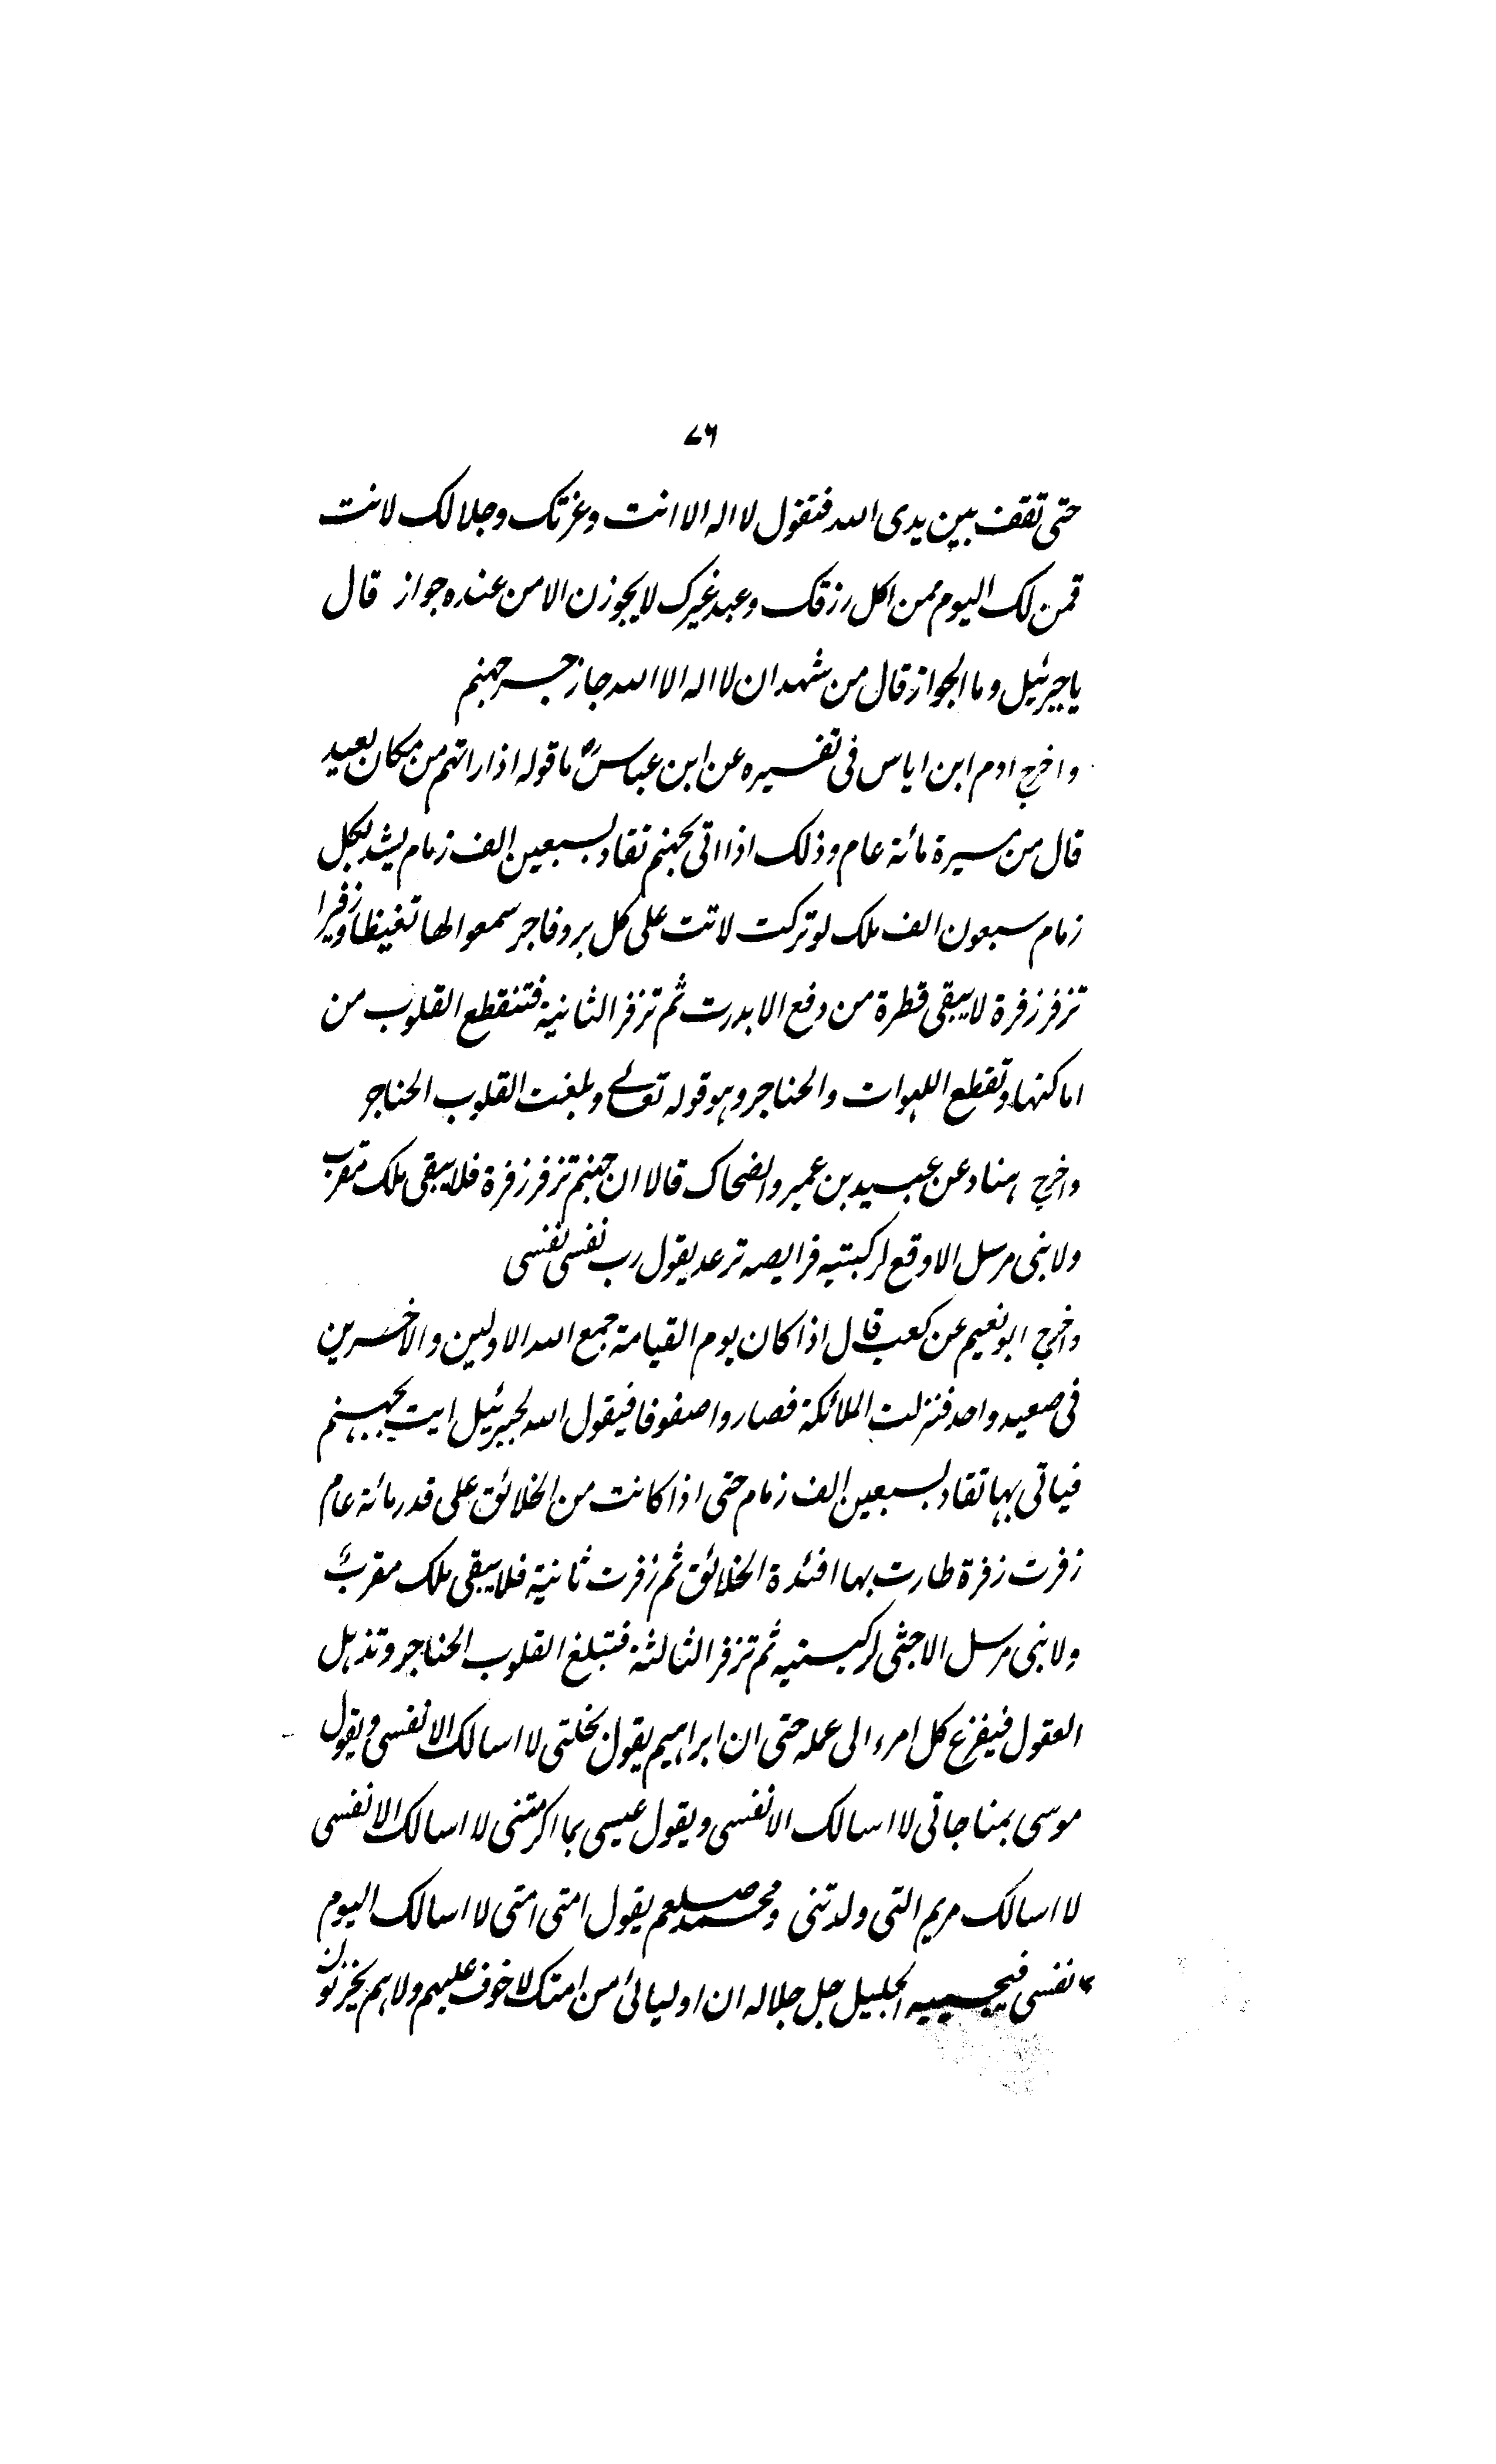 ۷۶
حتى تقف بين يدى الله فتقول لا اله الا انت وعزتك وجلالك لانت
قمن لك اليوم ممن اكل رزقك وعبد غيرك لا يجوزن الا من عنده جواز قال
يا جبرئيل وما الجواز قال من شهد ان لا اله الا الله جاز جسر جهنم
واخرج ادم ابن اياس فى تفسيره عن ابن عباسؓ ما قوله اذا راتهم من مكان بعيد
قال من مسيرة مائة عام وذلك اذا اتى بجهنم تقاد بسبعين الف زمام يشد بكل
زمام سبعون الف ملك لو تركت لاتت على كل بر وفاجر سمعوا لها تغيظا وزفيرا
تزفر زفرة لا يبقى قطرة من دمع الا بدرت ثم تزفر الثانية فتنقطع القلوب من
اماكنها وتقطع اللهوات والحناجر وهو قوله تعالے وبلغت القلوب الحناجر
واخرج هناد عن عبيد بن عمير والضحاك قالا ان جهنم تزفر زفرة فلا يبقى ملك مقرب
ولا نبى مرسل الا وقع لركبتيه فرايصه ترعد يقول رب نفسى نفسى
واخرج ابو نعيم عن كعب قال اذا كان يوم القيامة جمع الله الاولين والاخرين
فى صعيد واحد فنزلت الملائكة فصاروا صفوفا فيقول الله لجبرئيل ايت بجهنم
فياتى بها تقاد بسبعين الف زمام حتى اذا كانت من الخلائق على قدر مائة عام
زفرت زفرة طارت بها افئدة الخلائق ثم زفرت ثانية فلا يبقى ملك مقربٌ
ولا نبى مرسل الا جثى لركبتيه ثم تزفر الثالثة فتبلغ القلوب الحناجر وتذهل
العقول فيفزع كل امرء الى عمله حتى ان ابراهيم يقول بخلتى لا اسالك الا نفسى ويقول
موسى بمناجاتى لا اسالك الا نفسى ويقول عيسى بما اكرمتنى لا اسالك الا نفسى
لا اسالك مريم التى ولدتنى ومحمد صلعم يقول امتى امتى لا اسالك اليوم
نفسى فيجيبه الجليل جل جلاله ان اوليائى من امتك لا خوف عليهم ولا هم يحزنون